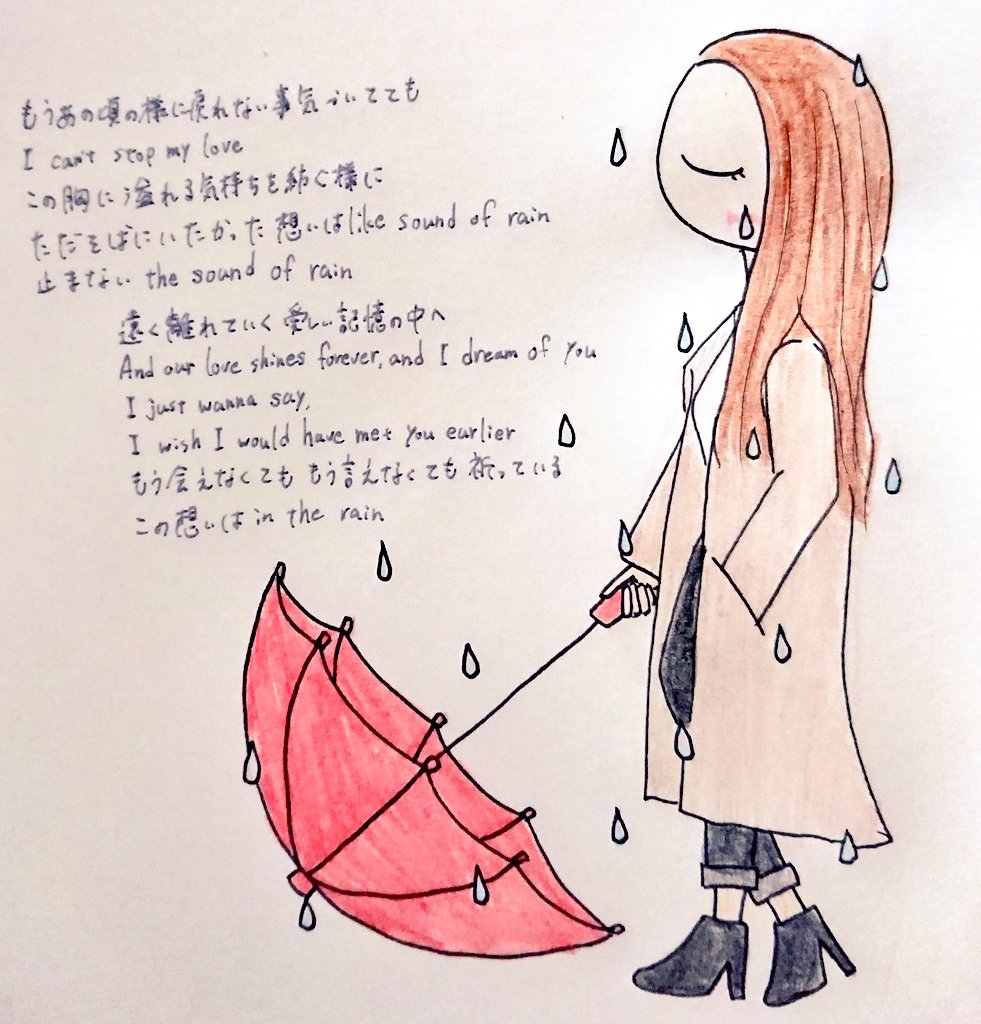 もうあの頃の様に戻れない事気づいてても
I can't stop my love
この胸に溢れる気持ちを紡ぐ様に
ただそばにいたかった想いはlike sound of rain
止まない the sound of rain
遠く離れていく愛しい記憶の中へ
And our love shines forever, and I dream of you
I just wanna say,
I wish I would have met you earlier
もう会えなくても もう言えなくても 祈っている
この想いは in the rain